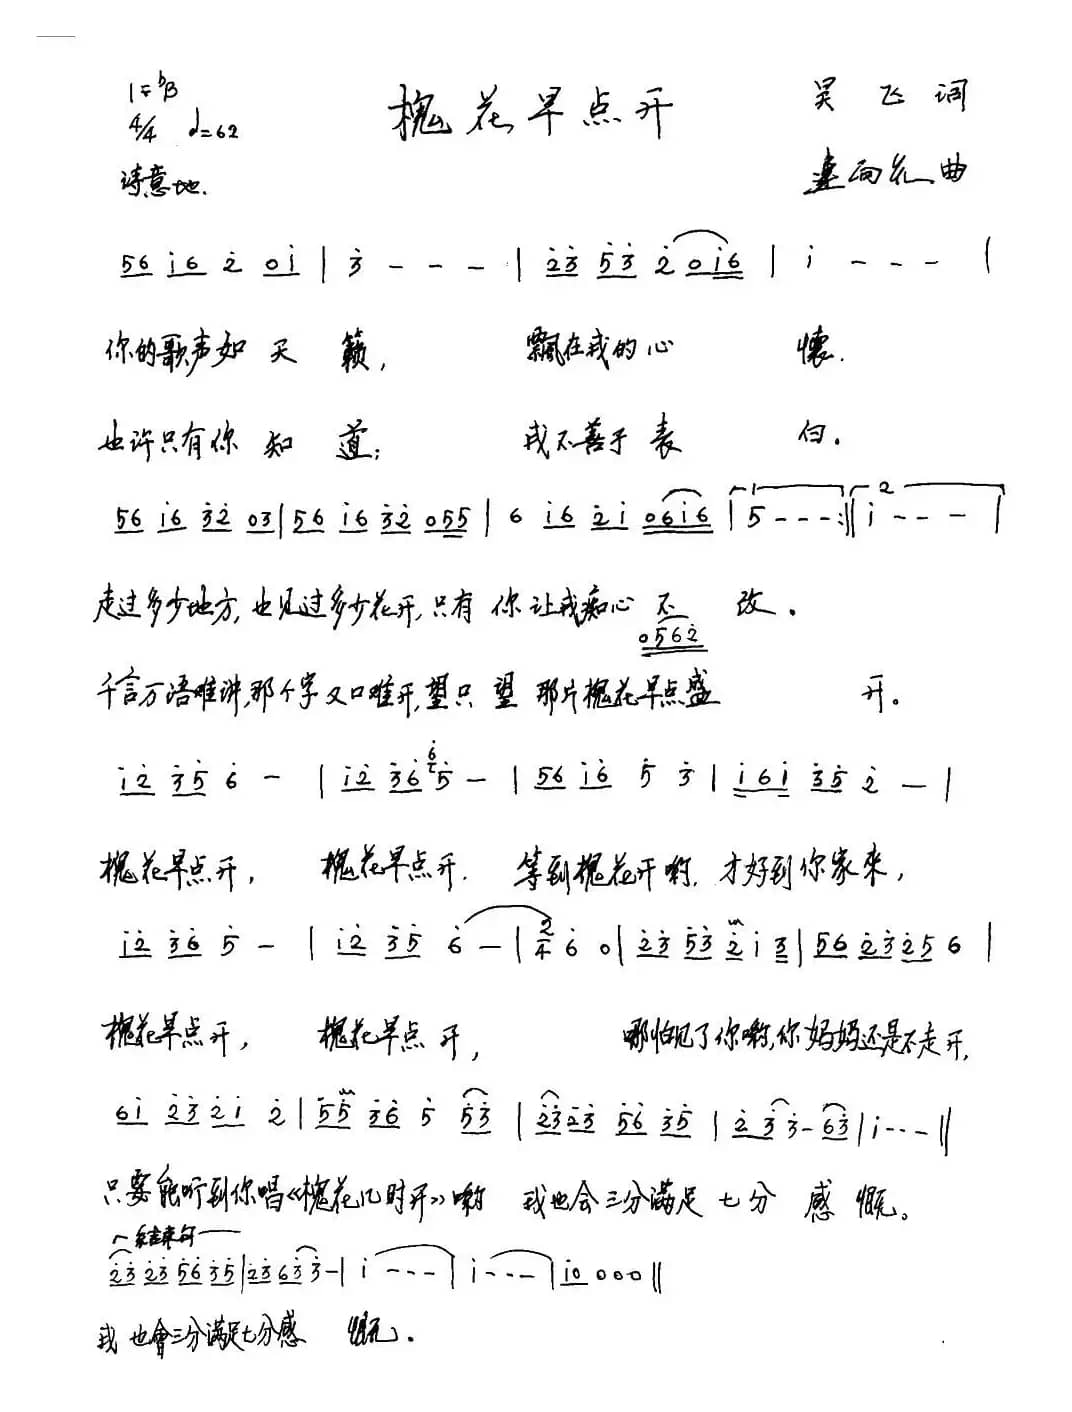 1=ᵇB
槐花早点开
吴飞词
4/4 ♩=62
诗意地.
向花曲
56 i̇6 2̇ 0i̇ | 3̇ - - - | 2̇3̇ 5̇3̇ 2̇ 0i̇6 | i̇ - - - |
你的歌声如天籁, 飘在我的心怀.
也许只有你知道; 我不善于表白。
56 i̇6 3̇2̇ 03̇ | 56 i̇6 3̇2̇ 055 | 6 i̇6 2̇i̇ 06i̇6 | 1 5 - - - :‖ 2 i̇ - - - |
走过多少地方,也见过多少花开,只有你让我痴心不改。
0562̇
千言万语难讲,那个字又口难开,望只望那片槐花早点盛开。
i̇2̇ 3̇5̇ 6̇ - | i̇2̇ 3̇6̇ 6̇5̇ - | 56 i̇6 5̇ 3̇ | i̇6i̇ 3̇5̇ 2̇ - |
槐花早点开, 槐花早点开. 等到槐花开哟,才好到你家来,
i̇2̇ 3̇6̇ 5̇ - | i̇2̇ 3̇5̇ 6̇ - | 2/4 6̇ 0 | 2̇3̇ 5̇3̇ 2̇ i̇ 3̇ | 56 2̇3̇2̇5 6 |
槐花早点开, 槐花早点开, 哪怕见了你哟,你妈妈还是不走开,
6i̇ 2̇3̇ 2̇i̇ 2̇ | 5̇5̇ 3̇6̇ 5̇ 5̇3̇ | 2̇3̇2̇3̇ 5̇6̇ 3̇5̇ | 2̇ 3̇ 3̇- 6̇3̇ | i̇ - - - ‖
只要能听到你唱《槐花几时开》哟 我也会三分满足七分感慨。
结束句
2̇3̇ 2̇3̇ 5̇6̇ 3̇5̇ | 2̇3̇ 6̇3̇ 3̇ - | i̇ - - - | i̇ - - - | i̇0 0 0 0 ‖
我也會三分满足七分感慨。